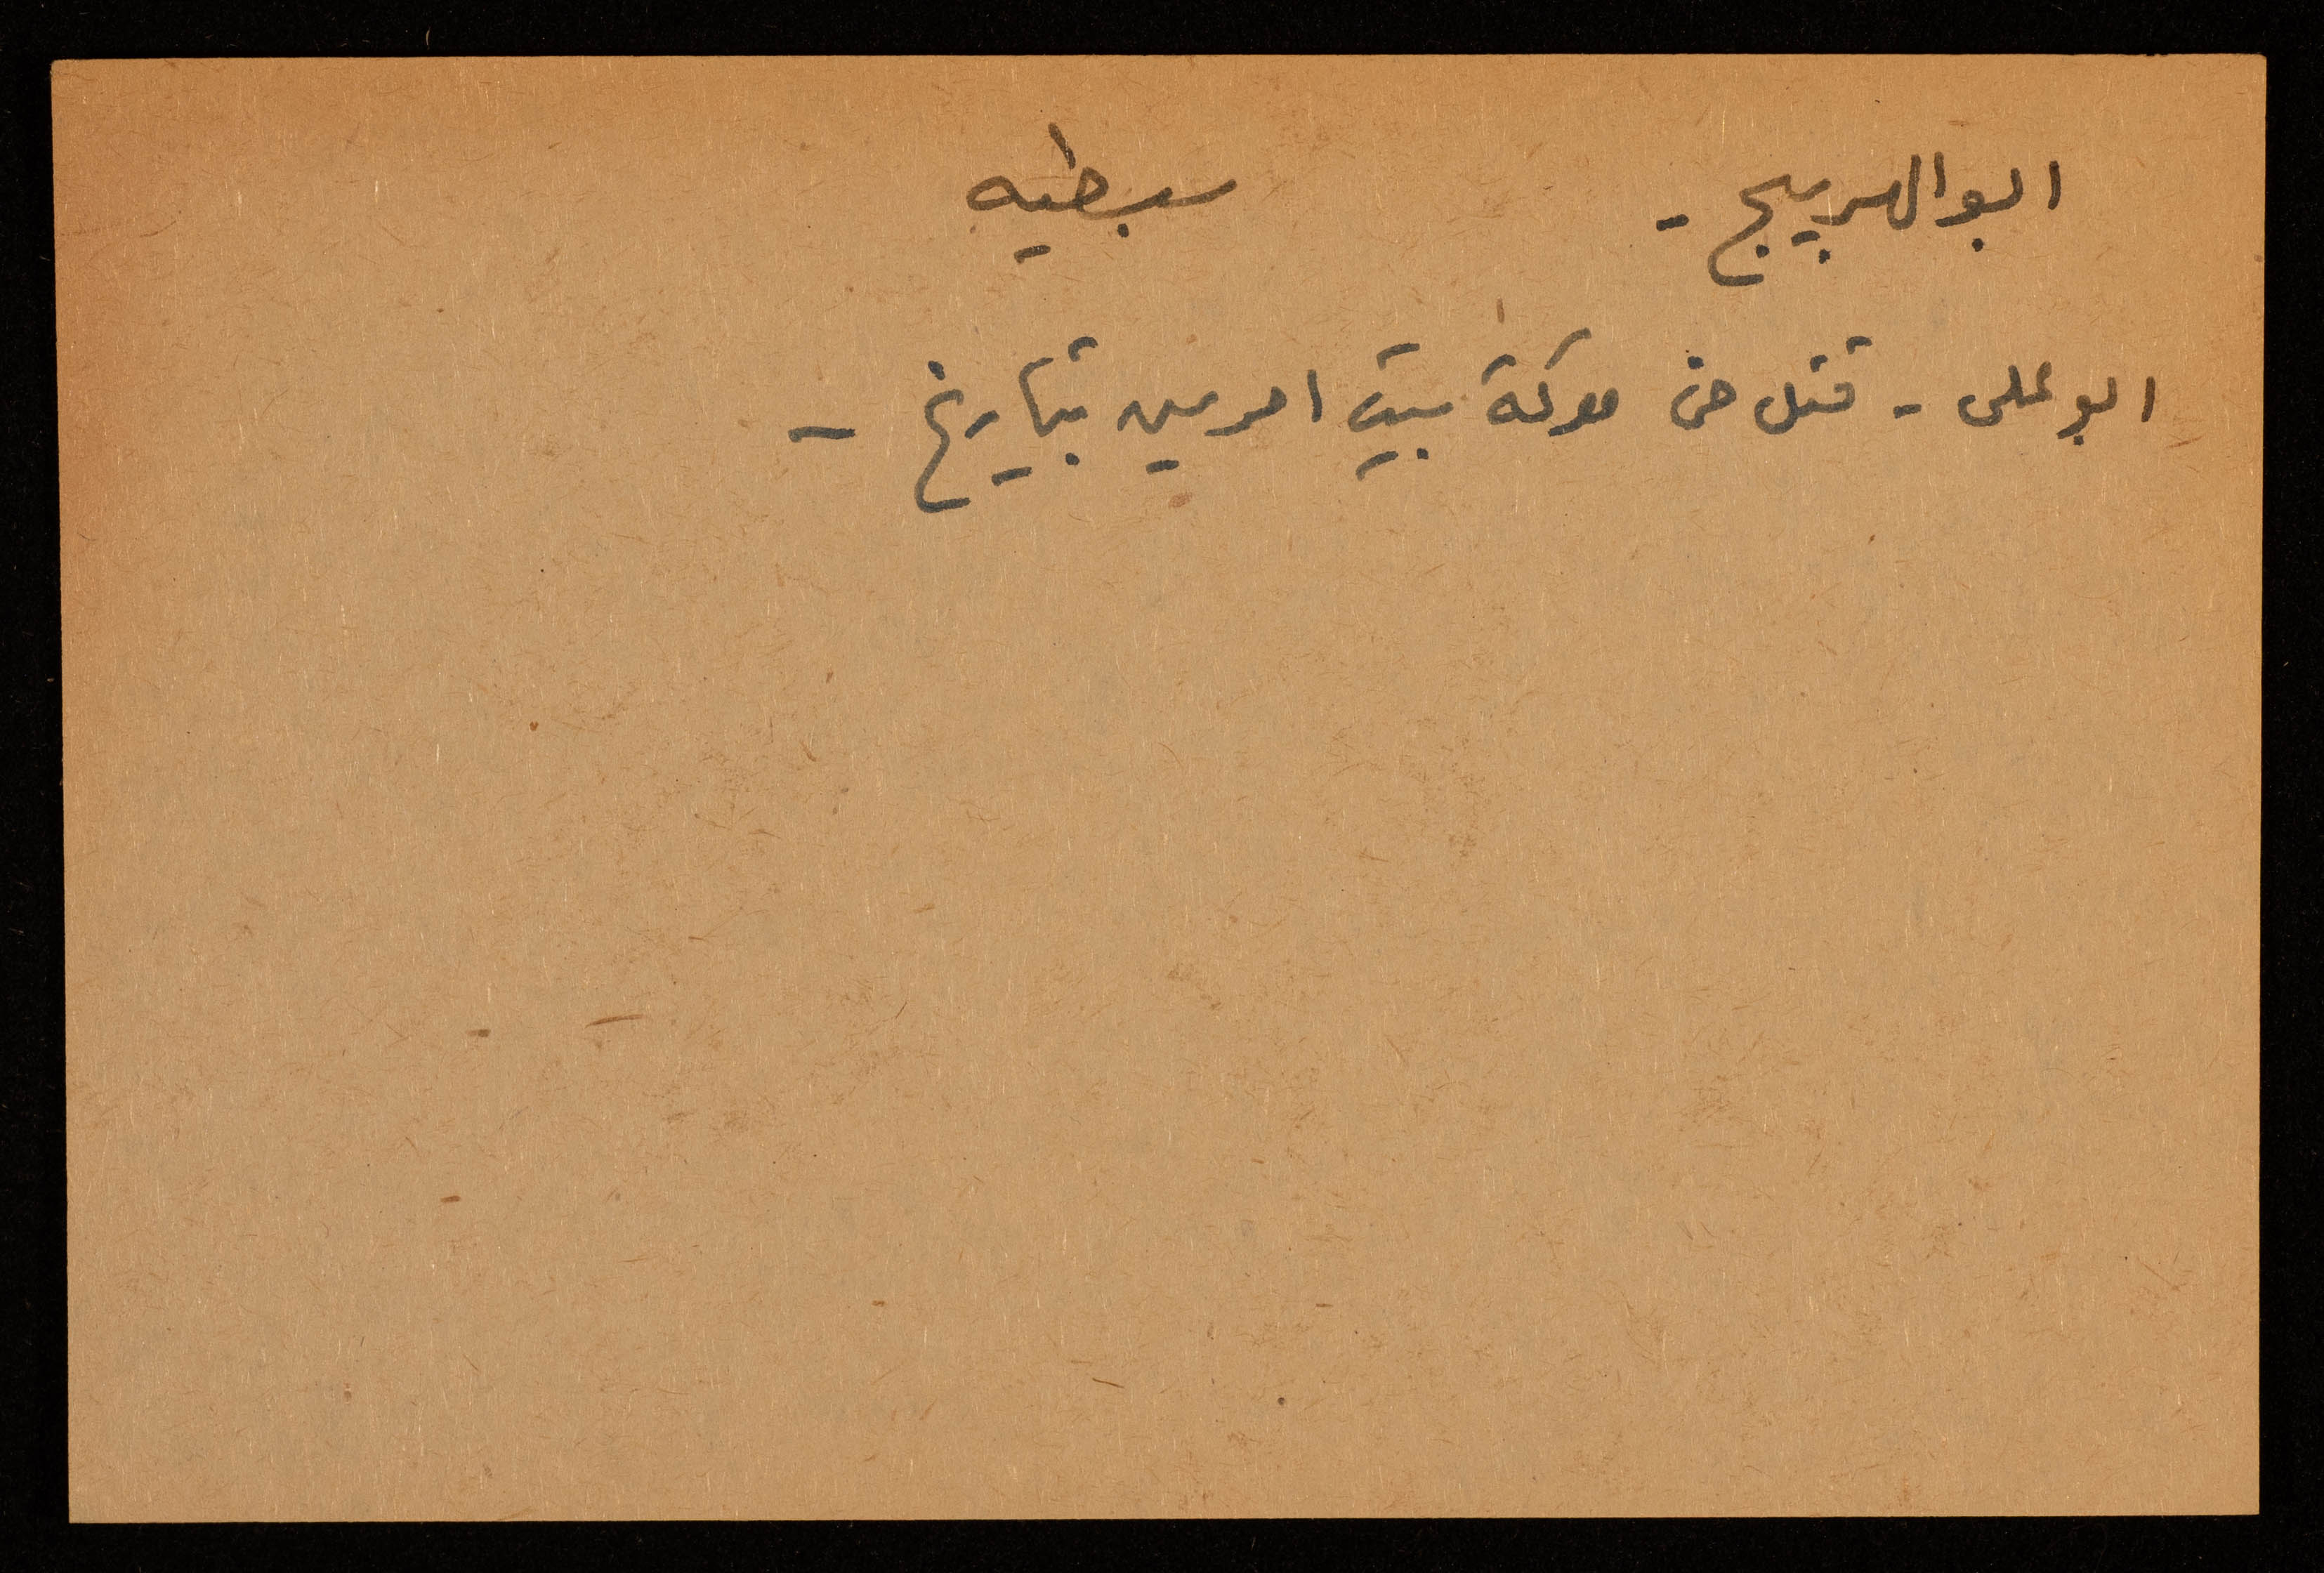 ابو الهريج - سبطيه
ابو علي - قتل في معركة بيت امرين بتاريخ -